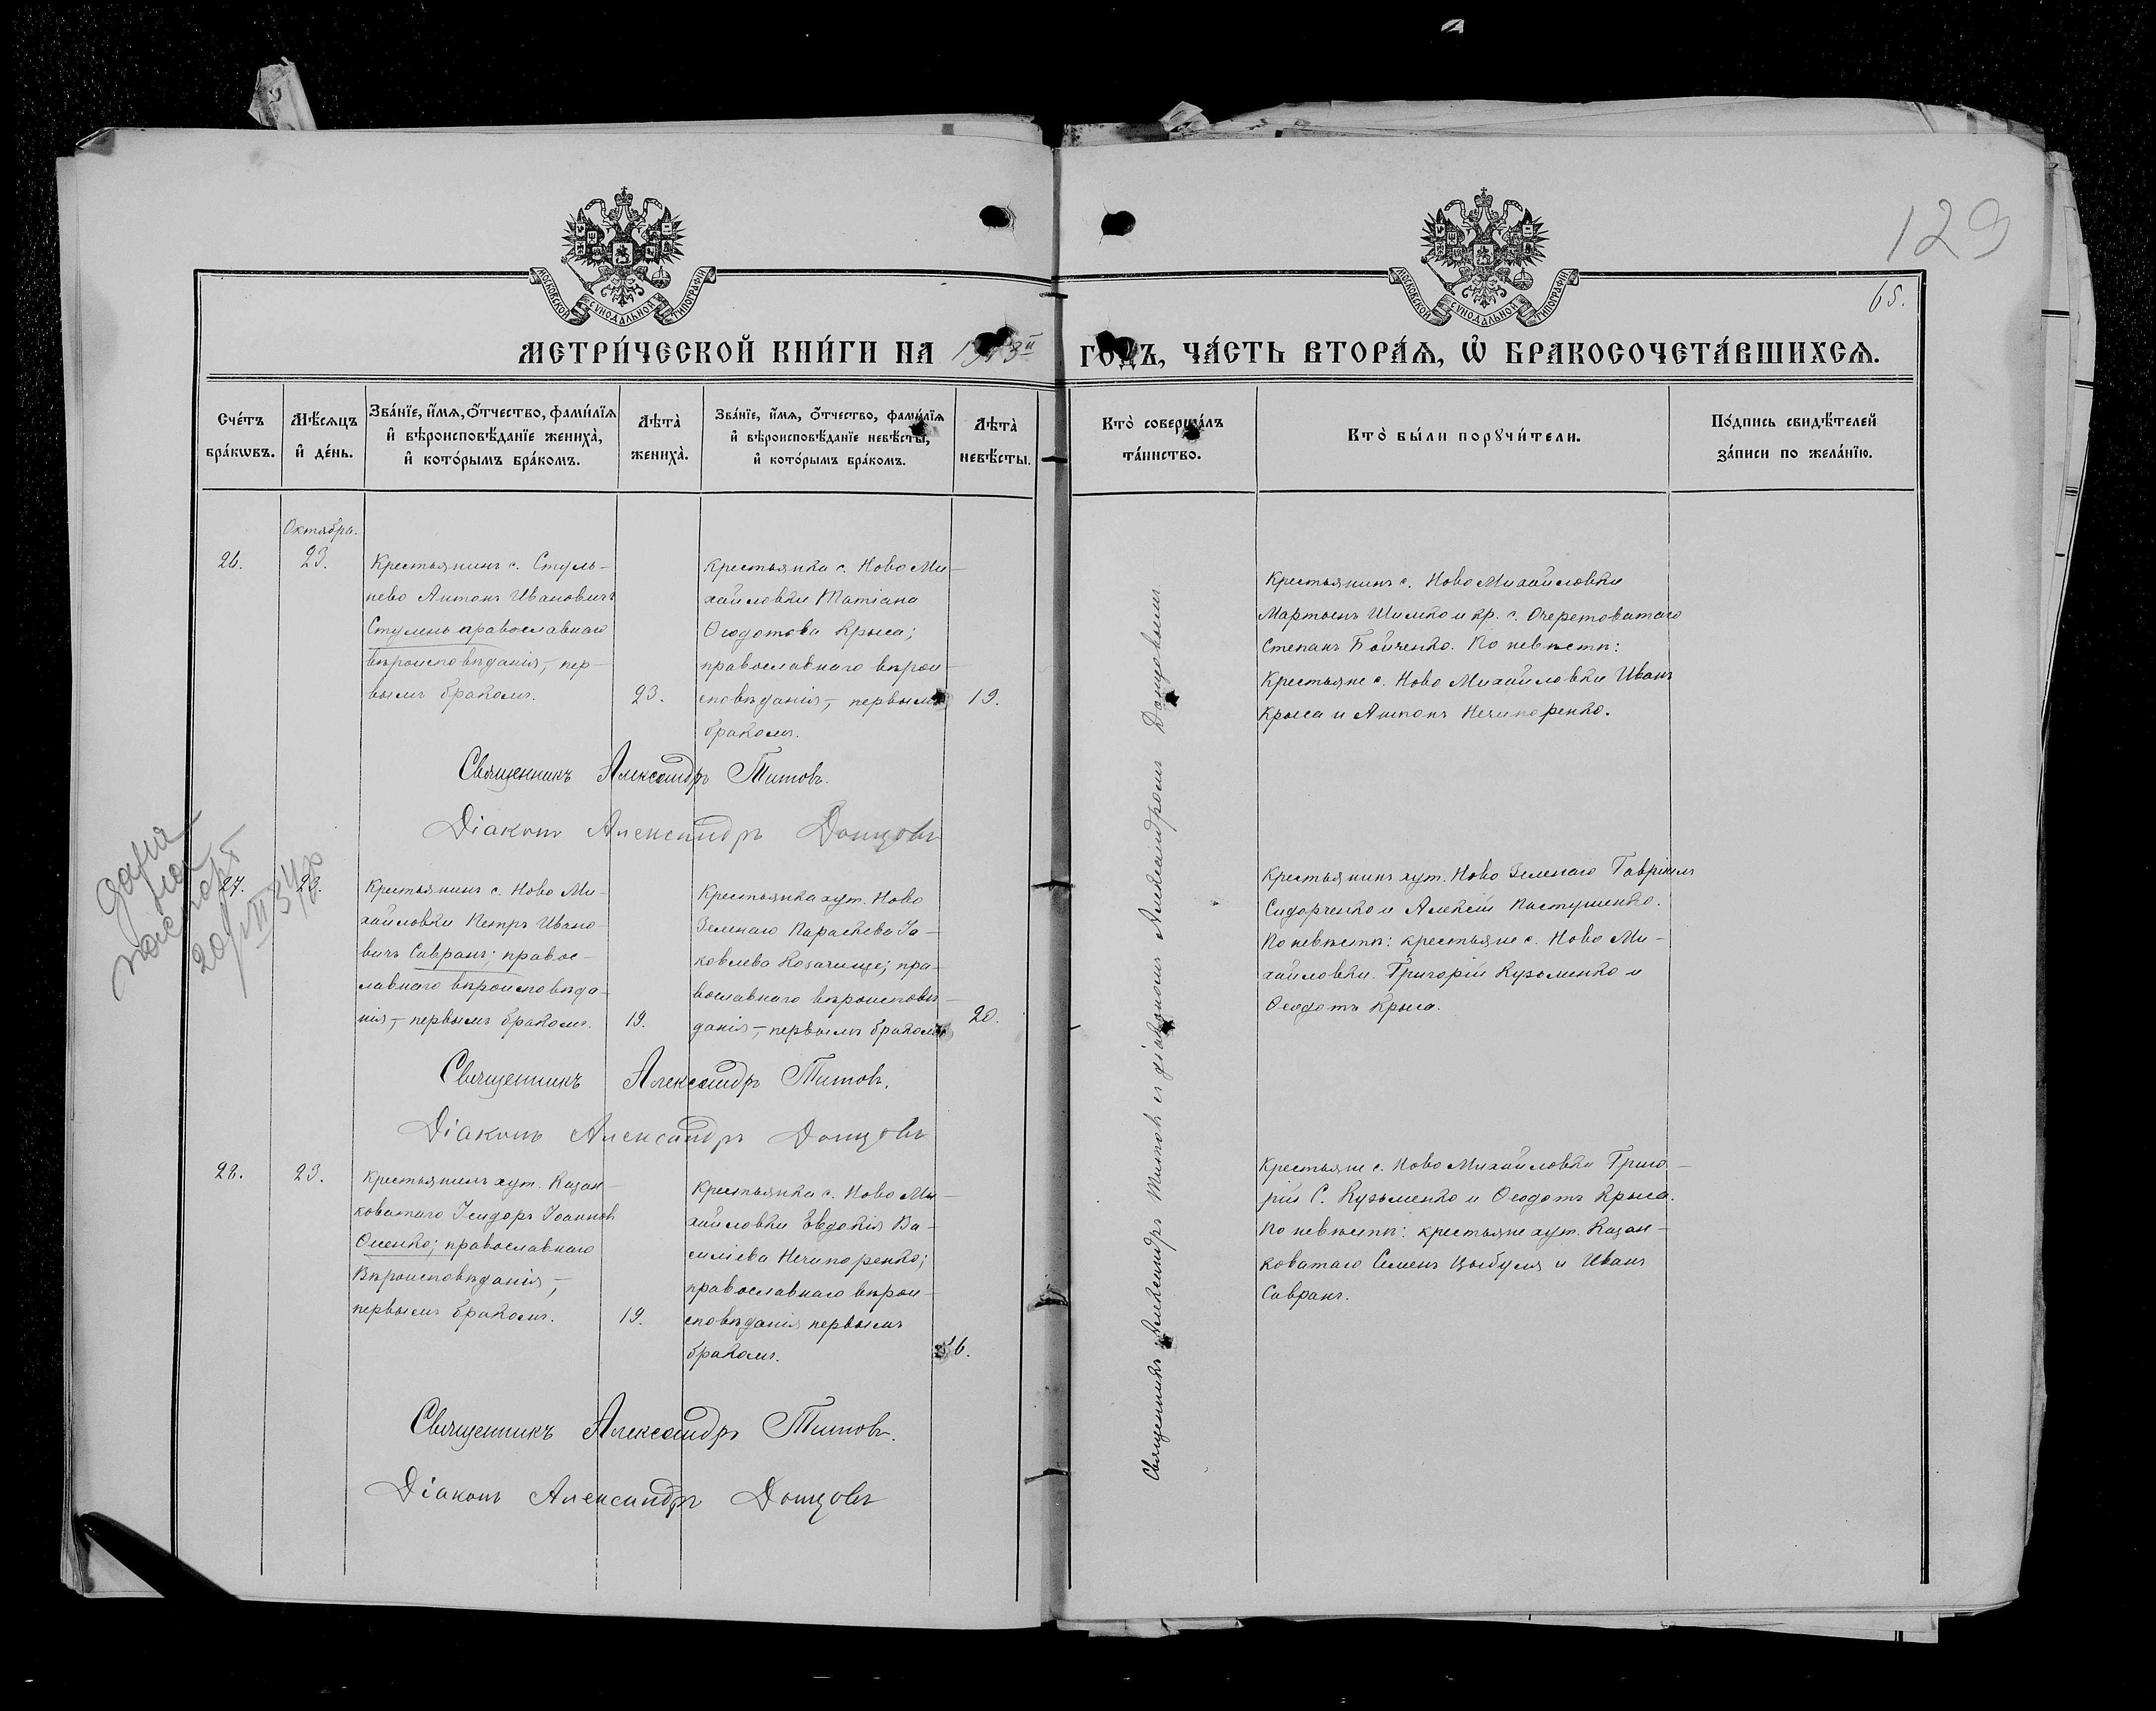 129
65.
МОСКОВСКОЙ СѴНОДАЛЬНОЙ ТИПОГРАФІИ
МОСКОВСКОЙ СѴНОДАЛЬНОЙ ТИПОГРАФІИ
МЕТРИ́ЧЕСКОЙ КНИ́ГИ НА 1913й ГО́ДЪ, ЧА́СТЬ ВТОРА́Ѧ, Ѡ҆ БРАКОСОЧЕТА́ВШИХСѦ.
Сче́тъ
бра́кѡвъ.
Мѣ́сѧцъ
и҆ де́нь.
Зва́нїе, и҆́мѧ, ѻ҆́тчество, фами́лїѧ
и҆ вѣроисповѣ́данїе жениха̀,
и҆ кото́рымъ бра́комъ.
Лѣта̀
жениха̀.
Зва́нїе, и҆́мѧ, ѻ҆́тчество, фами́лїѧ
и҆ вѣроисповѣ́данїе невѣ́сты,
и҆ кото́рымъ бра́комъ.
Лѣта̀
невѣ́сты.
Кто̀ соверша́лъ
та́инство.
Кто̀ бы́ли порꙋчи́тели.
По́дпись свидѣ́телей
за́писи по жела́нїю.
Октября.
26.
23.
Крестьянинъ с. Стуль-
нево Антонъ Ивановичъ
Стулень православнаго
вѣроисповѣданія, пер-
вымъ бракомъ.
23.
Крестьянка с. Ново Ми-
хайловки Татіана
Ѳеодотова Крыса;
православнаго вѣрои-
сповѣданія, первымъ
бракомъ.
19.
Крестьянинъ с. Ново Михайловки
Мартынъ Шилко и кр. с. Очеретоватаго
Степанъ Бойченко. По невѣстѣ:
Крестьяне с. Ново Михайловки Иванъ
Крыса и Антонъ Нечипоренко.
Священникъ Александръ Титовъ.
Діаконъ Александръ Донцовъ
27.
23.
Крестьянинъ с. Ново Ми-
хайловки Петръ Ивано-
вичъ Савранъ; правос-
лавнаго вѣроисповѣда-
нія, первымъ бракомъ.
19.
Крестьянка хут. Ново
Зеленаго Параскева Іа-
ковлева Козачище; пра-
вославнаго вѣроисповѣ-
данія, первымъ бракомъ
20.
Крестьянинъ хут. Ново Зеленаго Гавріилъ
Сидорченко и Алексій Пастушенко.
По невѣстѣ: крестьяне с. Ново Ми-
хайловки. Григорій Кузьменко и
Ѳеодотъ Крыса.
Священникъ Александръ Титовъ.
Діаконъ Александръ Донцовъ
28.
23.
Крестьянинъ хут. Казан-
коватаго Ісидоръ Іоанновъ
Осенко; православнаго
Вѣроисповѣданія,
первымъ бракомъ.
19.
Крестьянка с. Ново Ми-
хайловки Евдокія Ва-
силіева Нечипоренко;
православнаго вѣрои-
сповѣданія первымъ
бракомъ.
Крестьяне с. Ново Михайловки Григо-
рій С. Кузьменко и Ѳеодотъ Крыса.
По невѣстѣ: крестьяне хут. Казан-
коватаго Семенъ Цыбуля и Иванъ
Савранъ.
Священникъ Александръ Титовъ.
Діаконъ Александръ Донцовъ
Священникъ Александръ Титовъ съ діакономъ Александромъ Донцовымъ